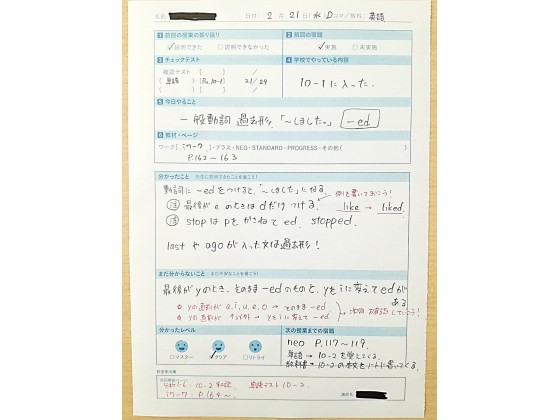 日付 2 月 21 日 (水) D コマ / 教科: 英語
1 前回の授業の振り返り
☑説明できた □説明できなかった
2 前回の宿題
☑実施 □未実施
3 チェックテスト
確認テスト [ ] /
(単語) [P.10-1] 21/29
( ) [ ] /
4 学校でやっている内容
10-1に入った.
5 今日やること
一般動詞 過去形.「~しました。」 -ed
6 教材・ページ
P.162~163
分かったこと
動詞に-edをつけると、「~しました」になる。
注 最後がeのときはdだけつける。
例も書いておこう!
like → liked.
注 stopはpをかさねてed. stopped.
lastやagoが入った文は過去形!
まだ分からないこと
最後がyのとき、そのまま-edのものと、yをiに変えてedが
ある
yの直前がa.i.u.e.o → そのまま-ed
yの直前が → yをiに変えて-ed
次回確認していこう!
分かったレベル
□マスター ☑クリア □リトライ
次の授業までの宿題
neo P.117~119.
単語→10-2を覚えてくる.
教科書→10-2の本文をノートに書いてくる.